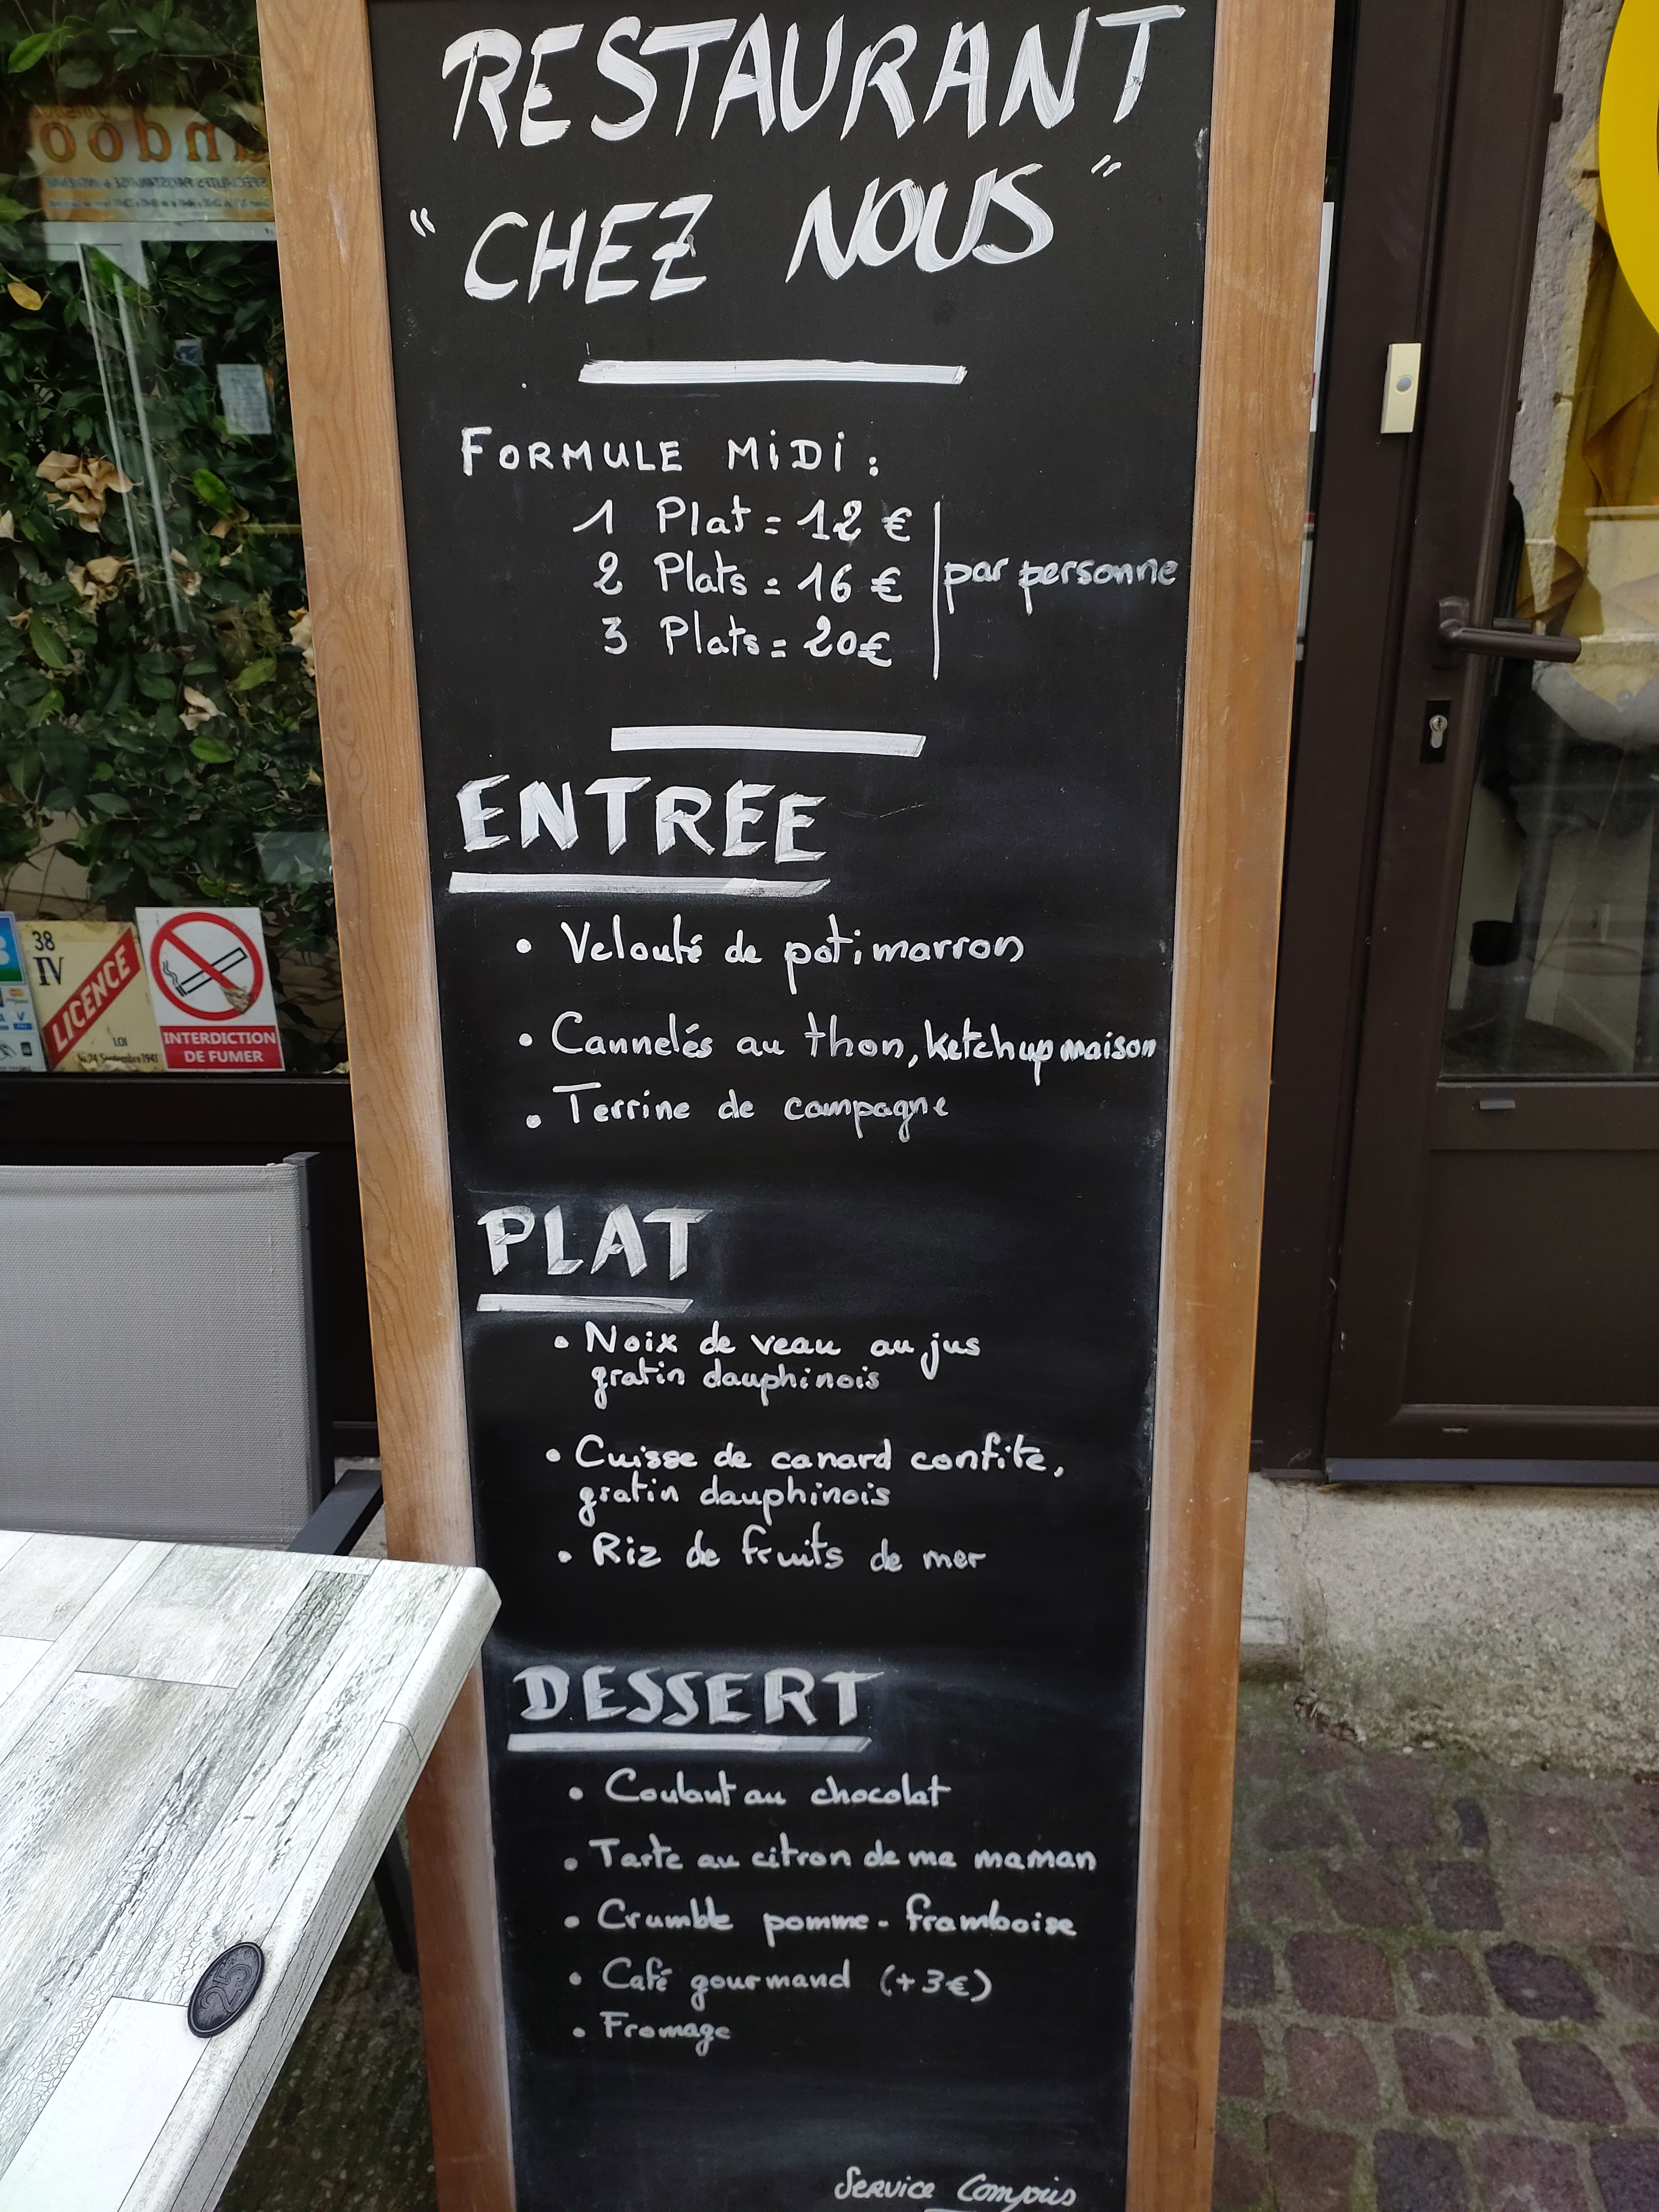 RESTAURANT
"CHEZ NOUS"
FORMULE MiDi :
1 Plat = 12 €
2 Plats = 16 €
3 Plats = 20€
par personne
ENTREE
• Velouté de potimarron
• Cannelés au thon, ketchup maison
• Terrine de campagne
PLAT
• Noix de veau au jus
gratin dauphinois
• Cuisse de canard confite,
gratin dauphinois
• Riz de fruits de mer
DESSERT
• Coulant au chocolat
• Tarte au citron de ma maman
• Crumble pomme - framboise
• Café gourmand (+3€)
• Fromage
Service Compris
38
IV
LICENCE
LOI
INTERDICTION
DE FUMER
25